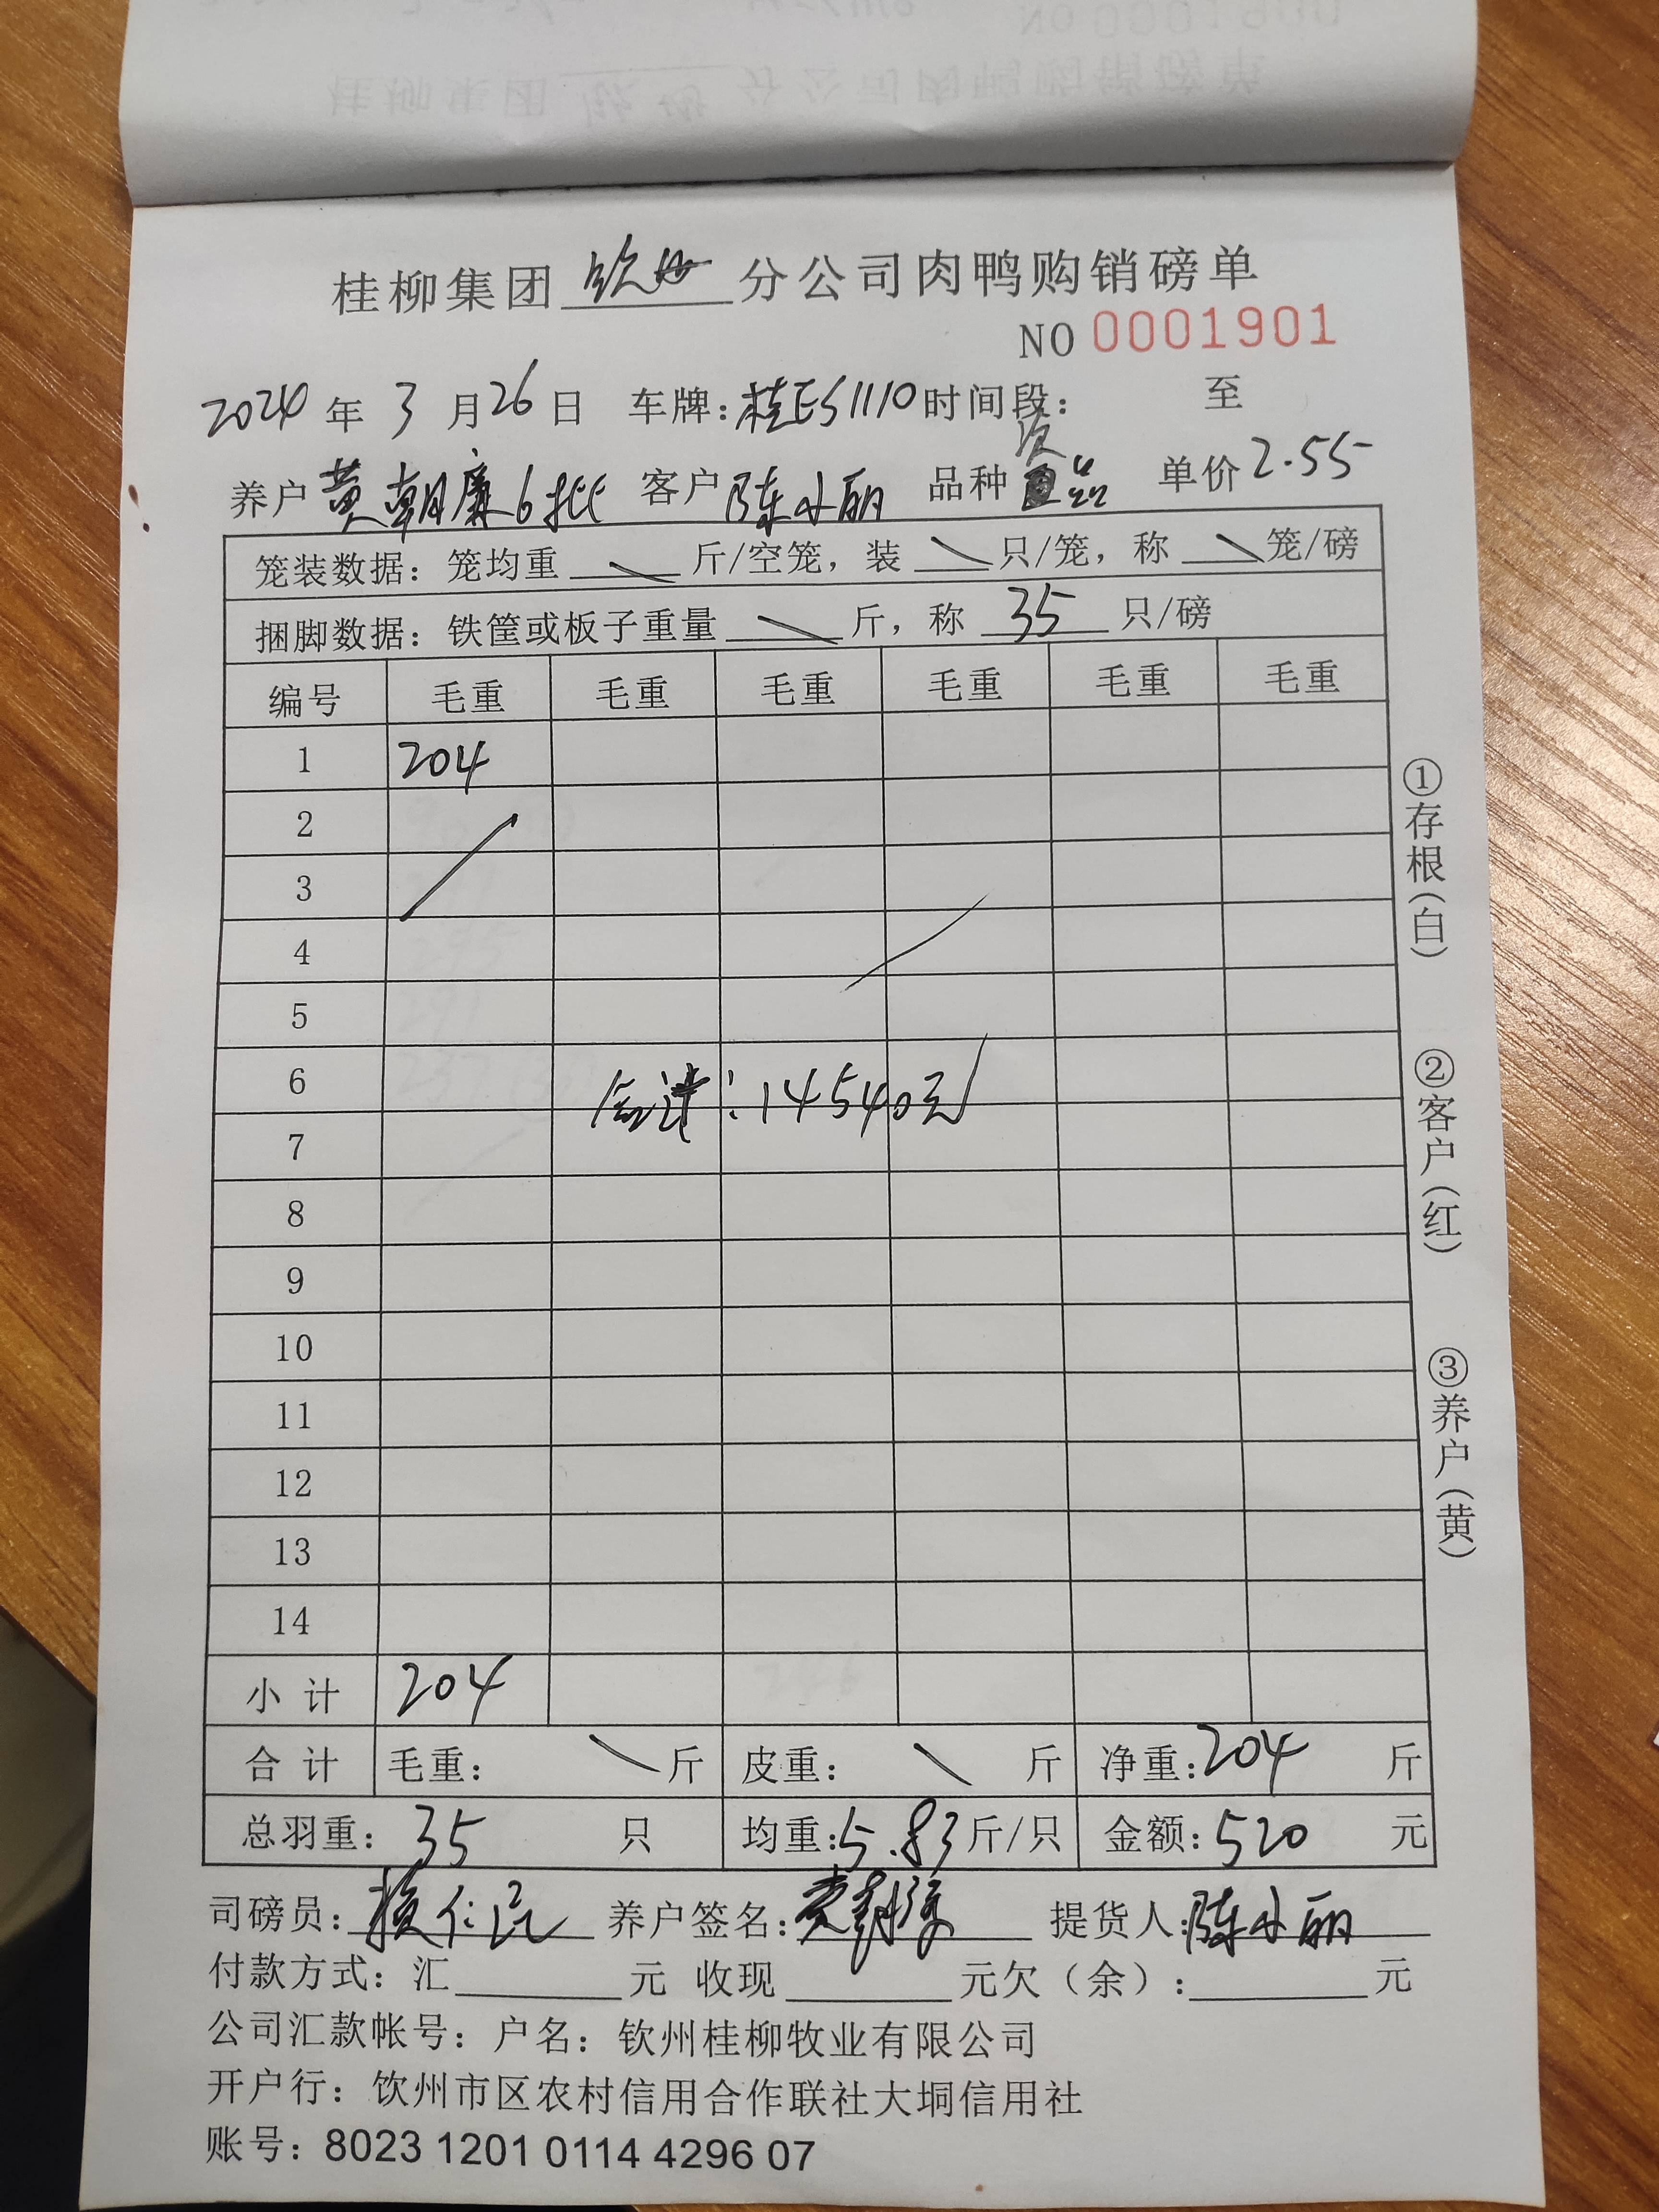 桂柳集团 钦州 分公司肉鸭购销磅单
NO 0001901
2024 年 3 月 26 日 车牌: 桂ES1110 时间段: 至
养户 黄朝廉6批 客户 陈小丽 品种 次品 单价 2.55
笼装数据: 笼均重 斤/空笼, 装 只/笼, 称 笼/磅
捆脚数据: 铁筐或板子重量 斤, 称 35 只/磅
编号 毛重 毛重 毛重 毛重 毛重 毛重
1 204
2
3
4
5
6
合计:14540元
7
8
9
10
11
12
13
14
小计 204
合计 毛重: 斤 皮重: 斤 净重: 204 斤
总羽重: 35 只 均重: 5.83 斤/只 金额: 520 元
司磅员: 养户签名: 提货人: 陈小丽
付款方式: 汇 元 收现 元欠(余): 元
公司汇款帐号: 户名: 钦州桂柳牧业有限公司
开户行: 钦州市区农村信用合作联社大垌信用社
账号: 8023 1201 0114 4296 07
①存根(白)
②客户(红)
③养户(黄)